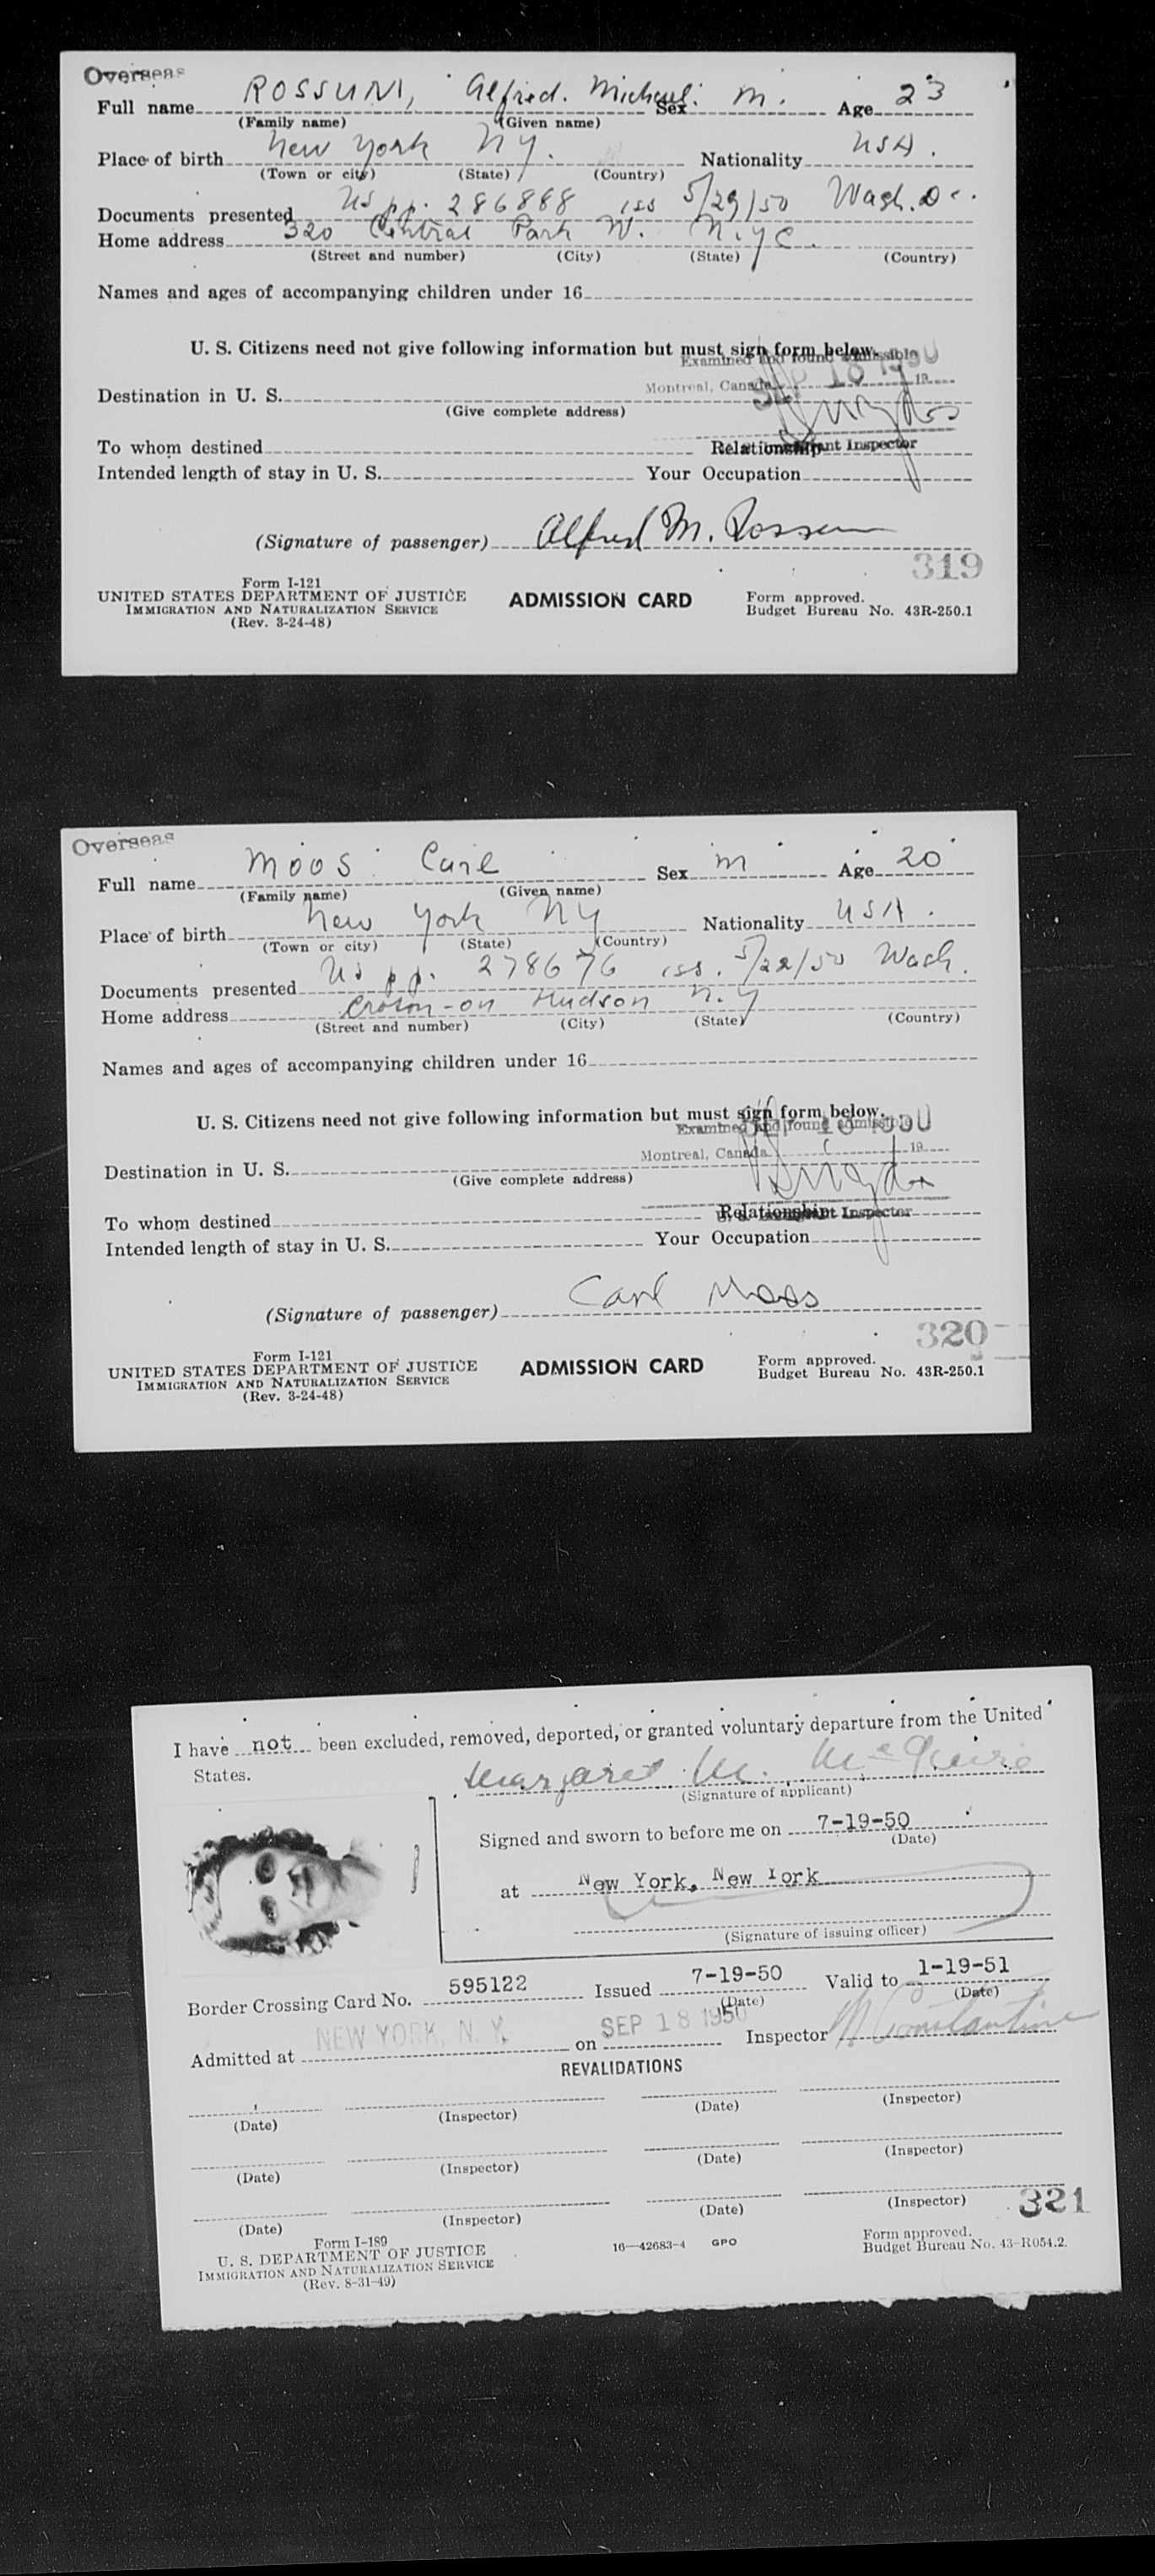 Overseas
Full name ROSSUM, Alfred. Michael. Sex M. Age 23
(Family name) (Given name)
Place of birth New York NY. Nationality USA.
(Town or city) (State) (Country)
Documents presented US pp. 286888 iss 5/29/50 Wash. DC.
Home address 320 Central Park W. N.Y.C.
(Street and number) (City) (State) (Country)
Names and ages of accompanying children under 16
U. S. Citizens need not give following information but must sign form below.
Examined and found admissible
SEP 18 1950
Montreal, Canada 19
Destination in U. S.
(Give complete address)
To whom destined Relationship
Immigrant Inspector
Intended length of stay in U. S. Your Occupation
(Signature of passenger) Alfred M. Rossum
319
Form I-121
UNITED STATES DEPARTMENT OF JUSTICE ADMISSION CARD Form approved.
IMMIGRATION AND NATURALIZATION SERVICE Budget Bureau No. 43R-250.1
(Rev. 3-24-48)
Overseas
Full name Moos Carl Sex M Age 20
(Family name) (Given name)
Place of birth New York NY Nationality USA.
(Town or city) (State) (Country)
Documents presented US pp. 278676 iss. 5/22/50 Wash.
Home address Croton-on Hudson N.Y
(Street and number) (City) (State) (Country)
Names and ages of accompanying children under 16
U. S. Citizens need not give following information but must sign form below.
Examined and found admissible
Montreal, Canada 19
Destination in U. S.
(Give complete address)
To whom destined Relationship
Immigrant Inspector
Intended length of stay in U. S. Your Occupation
(Signature of passenger) Carl Moos
320
Form I-121
UNITED STATES DEPARTMENT OF JUSTICE ADMISSION CARD Form approved.
IMMIGRATION AND NATURALIZATION SERVICE Budget Bureau No. 43R-250.1
(Rev. 3-24-48)
I have not been excluded, removed, deported, or granted voluntary departure from the United
States. Margaret M. McGuire
(Signature of applicant)
Signed and sworn to before me on 7-19-50
(Date)
at New York, New York
(Signature of issuing officer)
Border Crossing Card No. 595122 Issued 7-19-50 Valid to 1-19-51
(Date) (Date)
Admitted at NEW YORK, N. Y. on SEP 18 1950 Inspector M Constantine
REVALIDATIONS
(Date) (Inspector) (Date) (Inspector)
(Date) (Inspector) (Date) (Inspector)
(Date) (Inspector) (Date) (Inspector)
321
Form I-189
U. S. DEPARTMENT OF JUSTICE 16—42683-4 GPO Form approved.
IMMIGRATION AND NATURALIZATION SERVICE Budget Bureau No. 43-R054.2.
(Rev. 8-31-49)